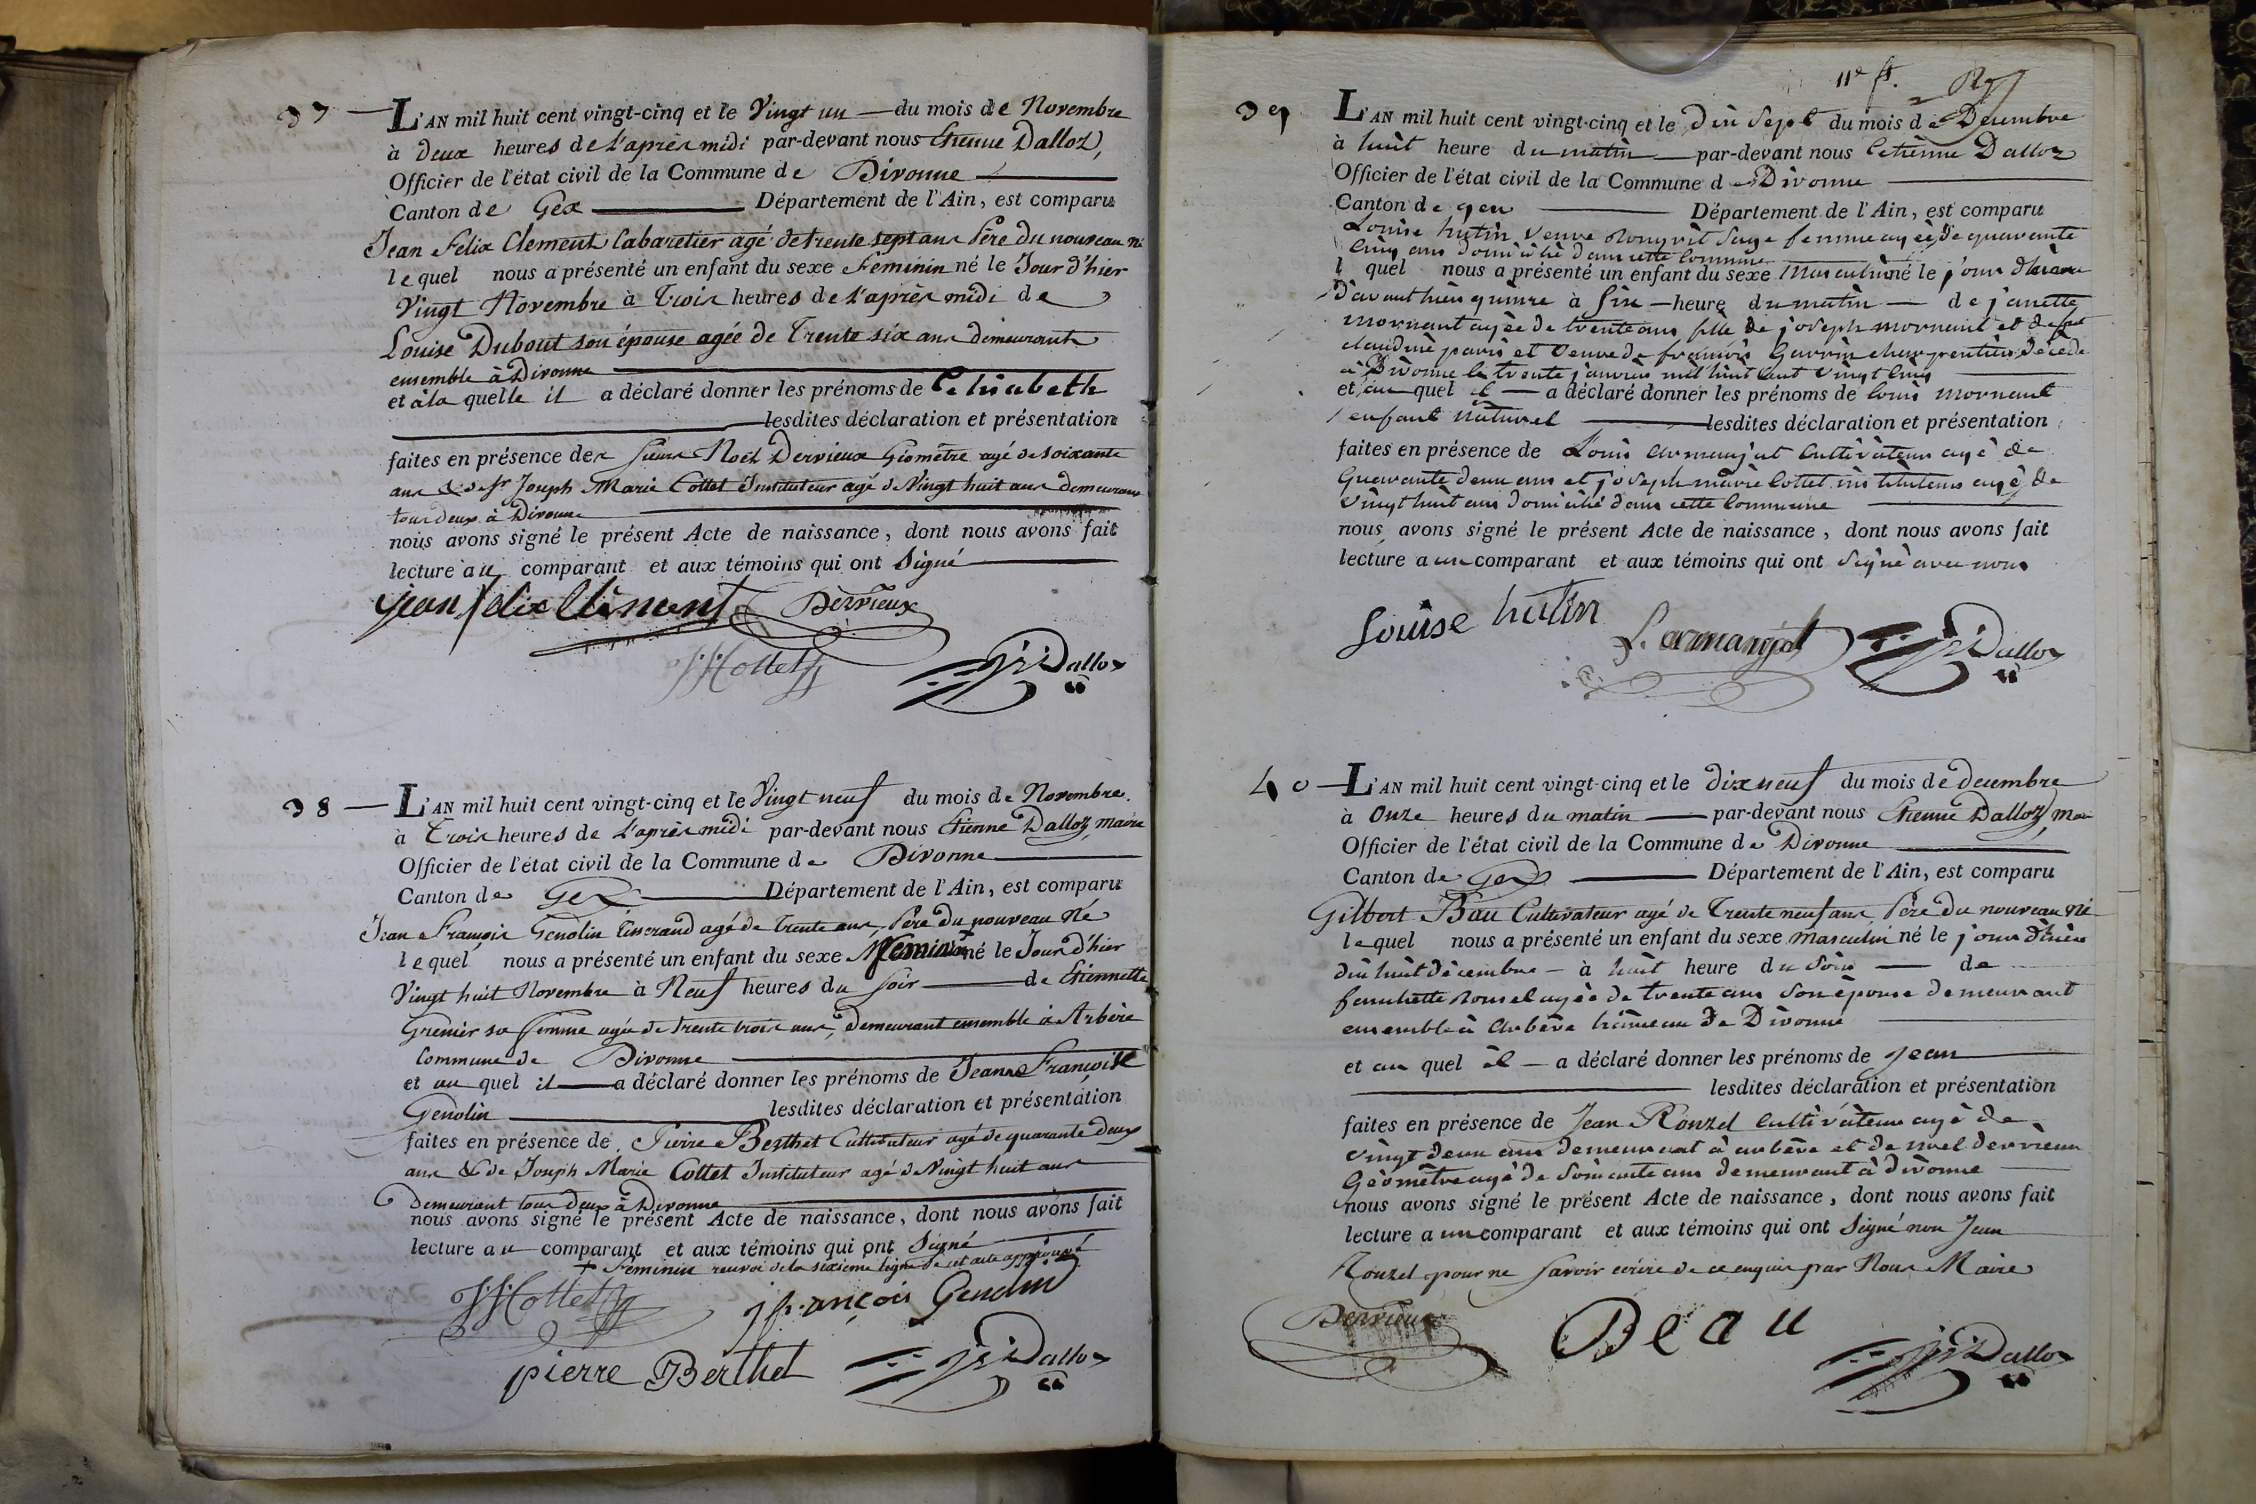 37 — L'AN mil huit cent vingt-cinq et le Vingt un — du mois de Novembre
à deux heures de l'après midi par-devant nous Etienne Dalloz,
Officier de l'état civil de la Commune de Divonne
Canton de Gex Département de l'Ain, est comparu
Jean Felix Clement Cabaretier agé de trente sept ans Père du nouveau né
lequel nous a présenté un enfant du sexe Féminin né le Jour d'hier
Vingt Novembre à Trois heures de l'après midi de
Louise Dubout son épouse agée de Trente six ans demeurants
ensemble à Divonne
et à la quelle il a déclaré donner les prénoms de Elisabeth
lesdites déclaration et présentation
faites en présence des sieurs Noël Dervieux Géomètre agé de soixante
ans & de Sr Joseph Marie Cottet Instituteur agé de Vingt huit ans demeurans
tous deux à Divonne
nous avons signé le présent Acte de naissance, dont nous avons fait
lecture au comparant et aux témoins qui ont Signé
jean felix Clément Dervieux
JMCottet Dalloz
38 — L'AN mil huit cent vingt-cinq et le Vingt neuf du mois de Novembre
à Trois heures de l'après midi par-devant nous Etienne Dalloz, maire
Officier de l'état civil de la Commune de Divonne
Canton de Gex Département de l'Ain, est comparu
Jean François Genolin Tisserand agé de trente ans, Père du nouveau Né
lequel nous a présenté un enfant du sexe Feminin né le Jour d'hier
Vingt huit Novembre à Neuf heures du soir de Etiennette
Grenier sa femme agée de trente trois ans, demeurant ensemble à Arbère
Commune de Divonne
et au quel il a déclaré donner les prénoms de Jeanne Françoise
Genolin lesdites déclaration et présentation
faites en présence de Pierre Berthet Cultivateur agé de quarante deux
ans & de Joseph Marie Cottet Instituteur agé de Vingt huit ans
demeurant tous deux à Divonne
nous avons signé le présent Acte de naissance, dont nous avons fait
lecture au comparant et aux témoins qui ont Signé
+ Feminin renvoi de la sixieme ligne de cet acte approuvé
JMCottet j françois Genolin
pierre Berthet Dalloz
11e f.
39 L'AN mil huit cent vingt-cinq et le Dix Sept du mois de Décembre
à huit heure du matin — par-devant nous Etienne Dalloz
Officier de l'état civil de la Commune de Divonne
Canton de gex Département de l'Ain, est comparu
Louise hutin veuve sage femme agée de quarante
cinq ans domiciliée dans cette Commune
l quel nous a présenté un enfant du sexe Masculin né le jour
d'avant hier quinze à six — heure du matin — de janette
mornant agée de trente ans fille de joseph mornant et de feu
claudine paris et veuve de françois Garrin charpentier décédé
à Divonne le trente janvier mil huit cent vingt cinq
et au quel il — a déclaré donner les prénoms de louis mornant
enfant naturel lesdites déclaration et présentation
faites en présence de Louis armanjat Cultivateur agé de
quarante deux ans et joseph marie Cottet instituteur agé de
vingt huit ans domicilié dans cette Commune
nous avons signé le présent Acte de naissance, dont nous avons fait
lecture a un comparant et aux témoins qui ont Signé avec nous
Louise hutin
L. armanjat Dalloz
40 — L'AN mil huit cent vingt-cinq et le dix neuf du mois de decembre
à Onze heures du matin — par-devant nous Etienne Dalloz, mai
Officier de l'état civil de la Commune de Divonne
Canton de Gex Département de l'Ain, est comparu
Gilbert Bau Cultivateur agé de Trente neuf ans, Père du nouveau Né
lequel nous a présenté un enfant du sexe masculin né le jour d'hier
dix huit décembre — à huit heure du soir — de
fanchette Ronzel agée de trente ans son épouse demeurant
ensemble à arbère hameau de Divonne
et au quel il — a déclaré donner les prénoms de jean
lesdites déclaration et présentation
faites en présence de Jean Ronzel Cultivateur agé de
vingt deux ans demeurant à arbère et de noel dervieux
géomètre agé de soixante ans demeurant à divonne
nous avons signé le présent Acte de naissance, dont nous avons fait
lecture a un comparant et aux témoins qui ont Signé non Jean
Ronzel pour ne savoir écrire de ce enquis par Nous Maire
Dervieux Beau Dalloz